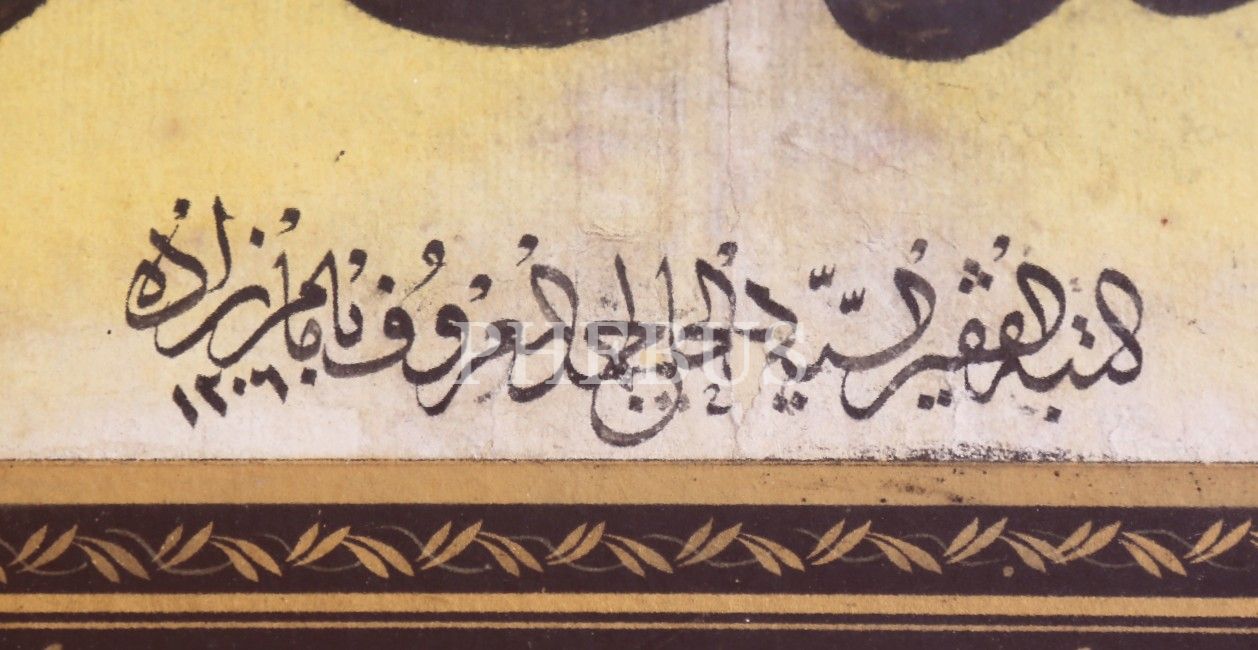 كتبه الفقير السيد الحاج احمد المعروف بامام زاده
١٢٠٦
PHEBUS